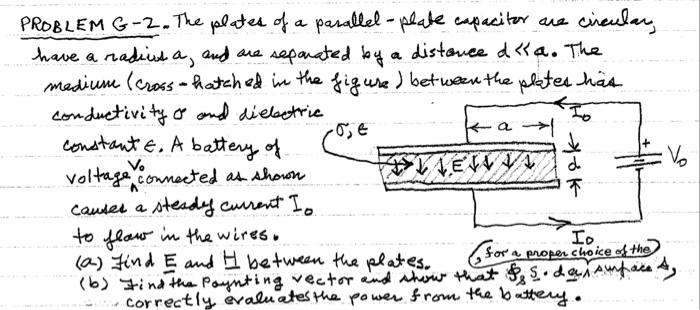 PROBLEM G-2. The plates of a parallel-plate capacitor are circular,
have a radius a, and are separated by a distance d << a. The
medium (cross-hatched in the figure) between the plates has
conductivity σ and dielectric
constant ϵ. A battery of
voltage V₀ connected as shown
causes a steady current I₀
to flow in the wires.
(a) Find E and H between the plates.
(b) Find the Poynting vector and show that ∮ₛ S · da, for a proper choice of the surface s,
correctly evaluates the power from the battery.
σ, ϵ
I₀
a
+
E
d
V₀
I₀